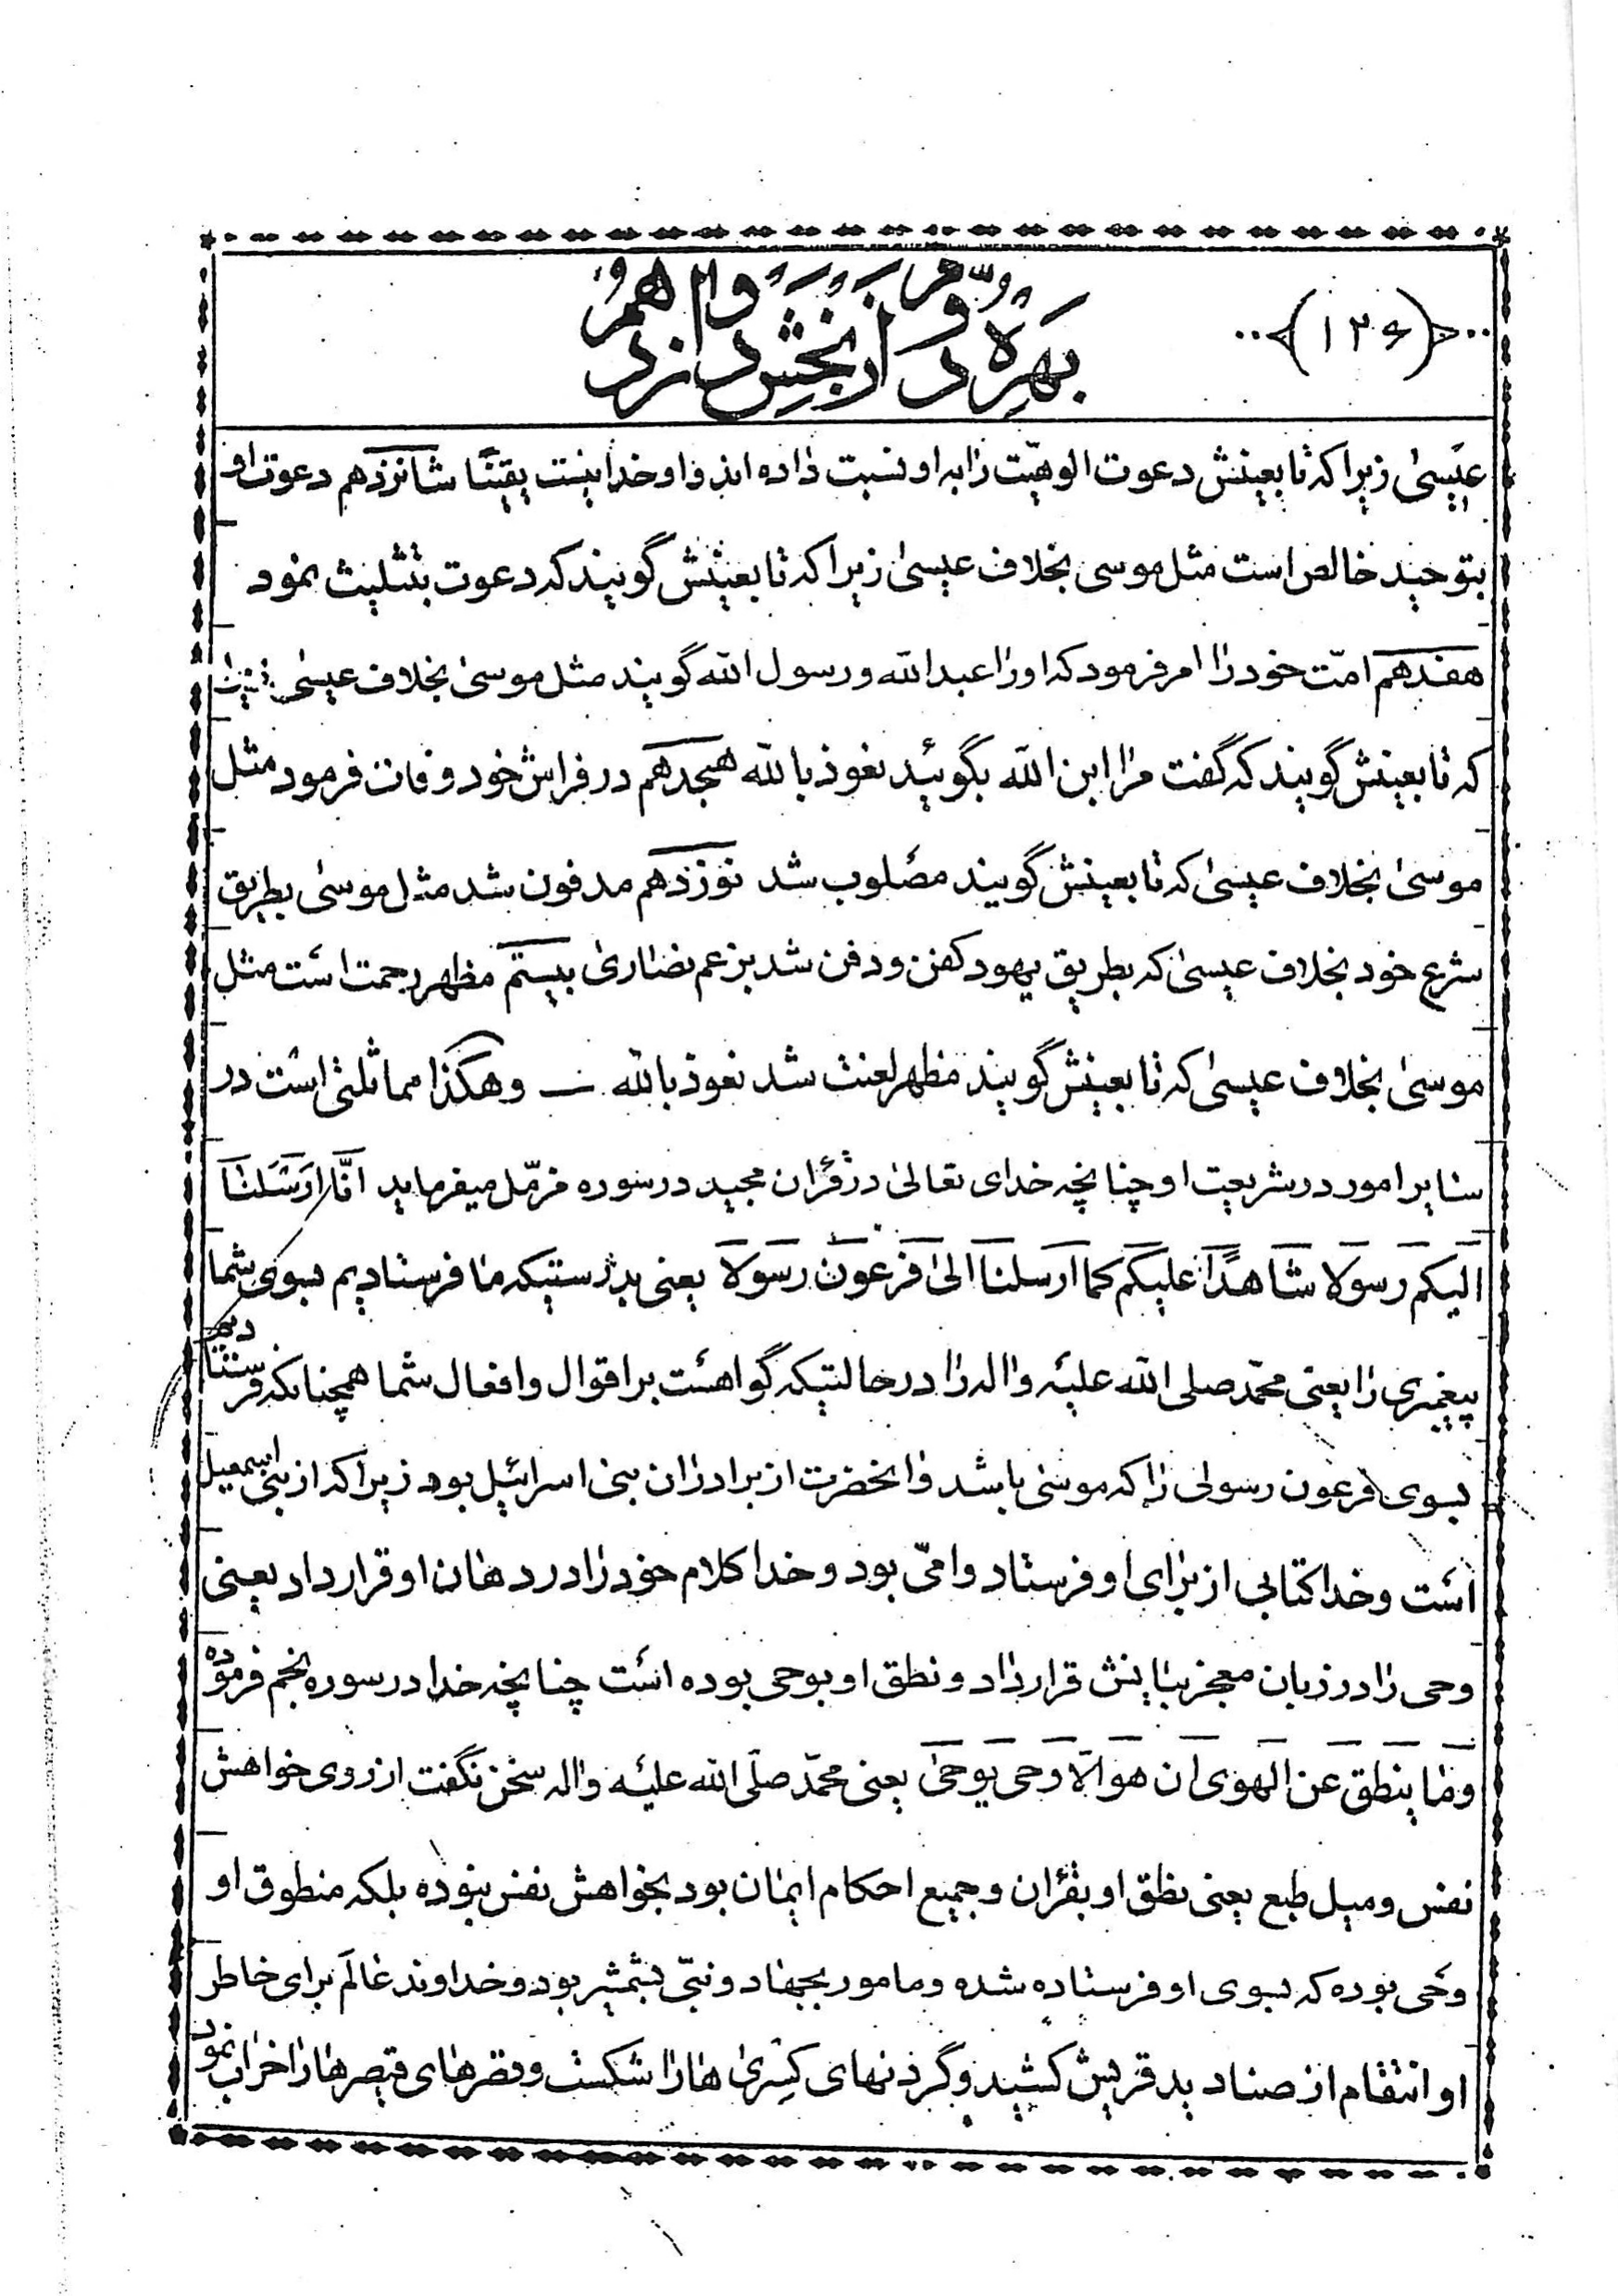 (۱۲۶)
بهرهٔ دوّم از بخش دوازدهم
عیسی زیرا که تابعینش دعوت الوهیّت را به او نسبت داده اند و او خدا نیست یقینًا شانزدهم دعوت او
بتوحید خالص است مثل موسی بخلاف عیسی زیرا که تابعینش گویند که دعوت بتثلیث نمود
هفدهم امّت خود را امر فرمود که او را عبدالله و رسول الله گویند مثل موسی بخلاف عیسی
که تابعینش گویند که گفت مرا ابن الله بگوئید نعوذ بالله هیجدهم در فراش خود وفات فرمود مثل
موسی بخلاف عیسی که تابعینش گویند مصلوب شد نوزدهم مدفون شد مثل موسی بطریق
شرع خود بخلاف عیسی که بطریق یهود کفن و دفن شد بزعم نصاری بیستم مظهر رحمت است مثل
موسی بخلاف عیسی که تابعینش گویند مظهر لعنت شد نعوذ بالله ــ وهکذا مماثلتی است در
سایر امور در شریعت او چنانچه خدای تعالی در قرآن مجید در سوره مزمّل میفرماید انّا ارسلنا
الیکم رسولا شاهدًا علیکم کما ارسلنا الی فرعون رسولا یعنی بدرستیکه ما فرستادیم بسوی شما
پیغمبری را یعنی محمّد صلی الله علیه واله را در حالتیکه گواهست بر اقوال و افعال شما همچنانکه فرستادیم
بسوی فرعون رسولی را که موسی باشد وانحضرت از برادران بنی اسرائیل بود زیرا که از بنی اسمعیل
است و خدا کتابی از برای او فرستاد و امّی بود و خدا کلام خود را در دهان او قرار داد یعنی
وحی را در زبان معجز بیانش قرار داد و نطق او بوحی بوده است چنانچه خدا در سوره نجم فرموده
وما ینطق عن الهوی ان هو الّا وحی یوحی یعنی محمّد صلّی الله علیه واله سخن نگفت از روی خواهش
نفس و میل طبع یعنی نطق او بقرآن و جمیع احکام ایمان بود بخواهش نفس نبوده بلکه منطوق او
وحی بوده که بسوی او فرستاده شده و مامور بجهاد و نبیّ بشمشیر بود و خداوند عالَم برای خاطر
او انتقام از صنادید قریش کشید و گردنهای کِسری ها را شکست و قصرهای قیصرها را خراب نمود